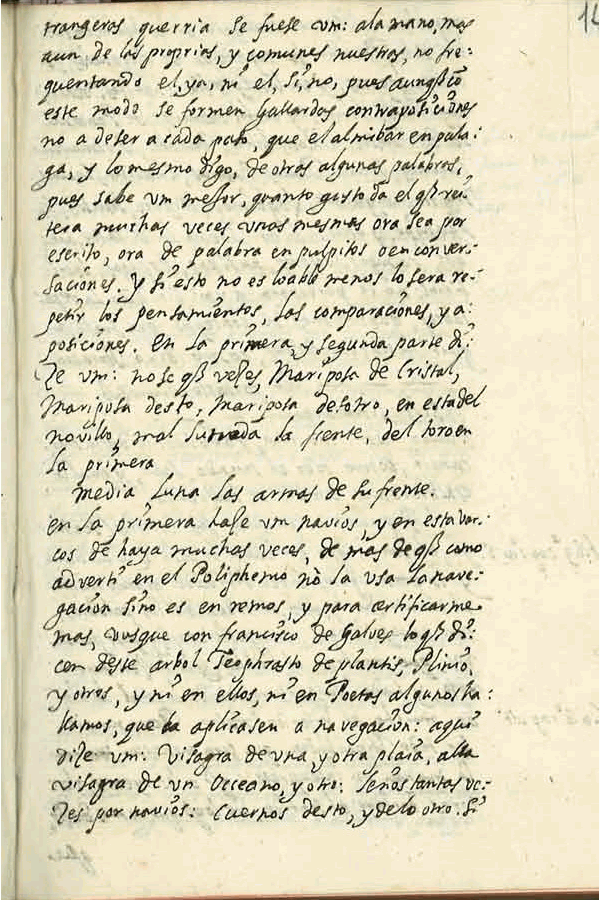 14
trangeras querria se fuese vm: ala mano, mas
aun de las proprias, y comunes nuestras, no fre:
quentando el, ya, ni el, si, no, pues aunq̃ cõ
este modo se formen Gallardas contraposiciones
no a de ser a cada paso, que el almibar empala:
ga, y lo mesmo digo, de otras algunas palabras,
pues sabe vm mejor, quanto gusto da el q̃ rei:
tera muchas veces vnas mesmas ora sea por
escrito, ora de palabra en pulpitos o en conver:
saciones. y si esto no es loable menos lo sera re:
petir los pensamientos, las comparaciones, y a:
posiciones. En la primera, y segunda parte di:
ze vm: no se q̃ vezes, Mariposa de Cristal,
Mariposa desto, Mariposa desotro, en esta del
novillo, mal la frente, del toro en
la primera
media Luna las armas de su frente.
en la primera haze vm navios, y en esta var:
cos de haya muchas veces, de mas de q̃ como
adverti en el Poliphemo no la usa la nave:
gacion sino es en remos, y para certificarme
mas, busque con francisco de Galvez lo q̃ di:
cen deste arbol Teophrasto de plantis, Plinio,
y otros, y ni en ellos, ni en Poetas algunos ha:
llamos, que la aplicasen a navegacion: aqui
dize vm: Visagra de una, y otra plaia, alla
visagra de un Occeano, y otro: senos tantas ve:
zes por navios: Cuernos desto, y de lo otro. Si